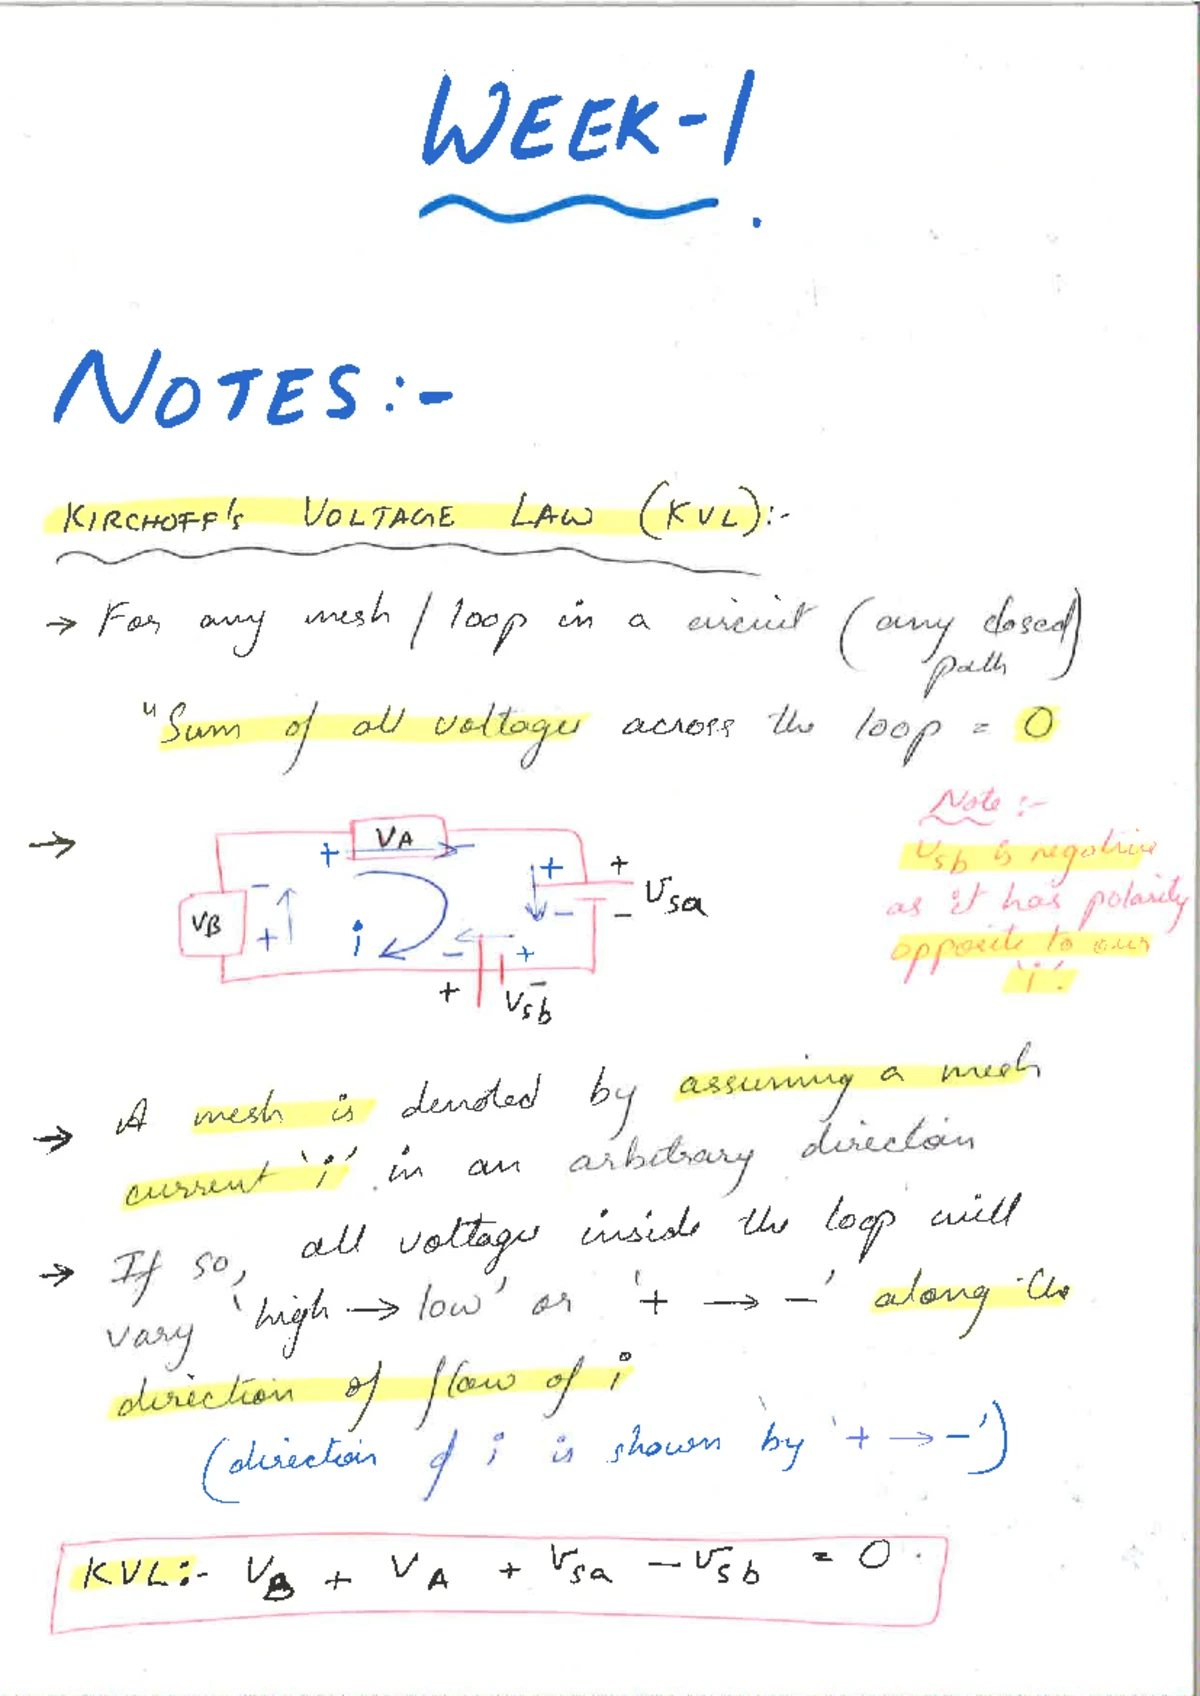 WEEK-1
NOTES:-
KIRCHOFF's VOLTAGE LAW (KVL):-
→ For any mesh / loop in a circuit (any closed path)
"Sum of all voltages across the loop = 0
→
VA
+ -
VB
- +
i
+ -
+ -
Vsa
- +
+ -
Vsb
Note :-
Vsb is negative
as it has polarity
opposite to our
'i'.
→ A mesh is denoted by assuming a mesh
current 'i' in an arbitrary direction
→ If so, all voltages inside the loop will
vary 'high → low' or '+ → -' along the
direction of flow of i
(direction of i is shown by '+ → -')
KVL:- VB + VA + Vsa - Vsb = 0.